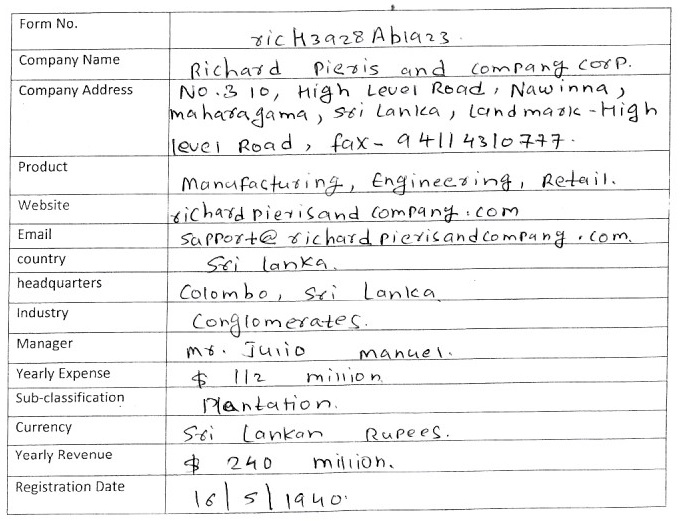 Form No.
ricH3928Ab1923.
Company Name
Richard Pieris and company corp.
Company Address
No.310, High Level Road, Nawinna,
maharagama, sri Lanka, landmark-High
level Road, fax- 94114310777.
Product
Manufacturing, Engineering, Retail.
Website
richardpierisandcompany.com
Email
support@richardpierisandcompany.com.
country
Sri lanka.
headquarters
Colombo, Sri Lanka
Industry
Conglomerates.
Manager
mr. Julio manuel.
Yearly Expense
$ 112 million
Sub-classification
Plantation.
Currency
Sri Lankan Rupees.
Yearly Revenue
$ 240 million.
Registration Date
16/5/1940.